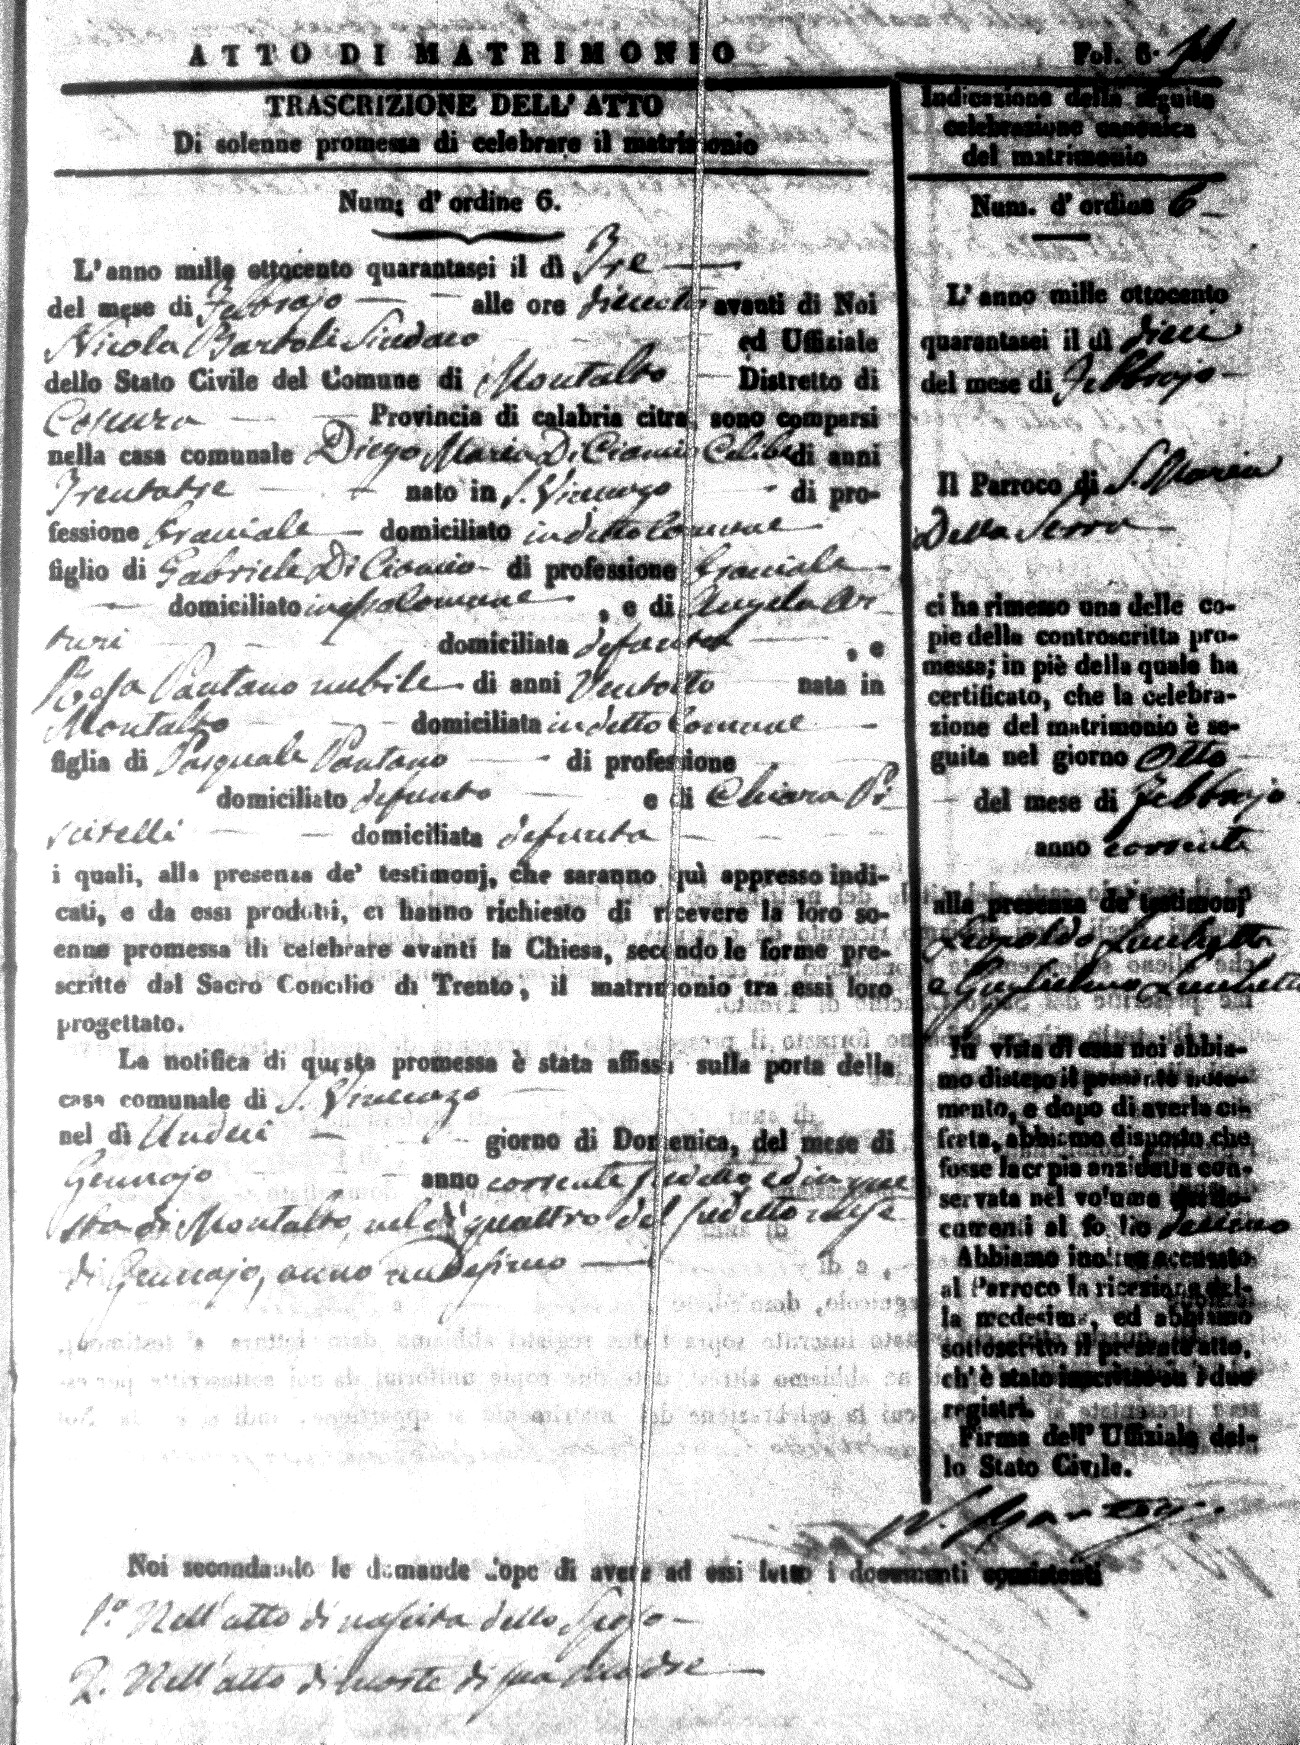 ATTO DI MATRIMONIO
Fol. 6.
TRASCRIZIONE DELL' ATTO
Di solenne promessa di celebrare il matrimonio
Num. d' ordine 6.
L' anno mille ottocento quarantasei il dì Tre
del mese di Febbrajo alle ore avanti di Noi
Nicola Bartoli Sindaco ed Uffiziale
dello Stato Civile del Comune di Montalto Distretto di
Cosenza Provincia di calabria citra, sono comparsi
nella casa comunale Diego Maria Di Ciancio Celibe di anni
Trentatre nato in S. Vincenzo di pro-
fessione braciale domiciliato in detto Comune
figlio di Gabriele Di Ciancio di professione braciale
domiciliato in esso Comune, e di Angela Ar
turi domiciliata defunta, e
Rosa Pantano nubile di anni Ventotto nata in
Montalto domiciliata in detto Comune
figlia di Pasquale Pantano di professione
domiciliato defunto e di Chiara Pi
scitelli domiciliata defunta
i quali, alla presenza de' testimonj, che saranno quì appresso indi-
cati, e da essi prodotti, ci hanno richiesto di ricevere la loro so-
enne promessa di celebrare avanti la Chiesa, secondo le forme pre-
scritte dal Sacro Concilio di Trento, il matrimonio tra essi loro
progettato.
La notifica di questa promessa è stata affissa sulla porta della
casa comunale di S. Vincenzo
nel dì Undeci giorno di Domenica, del mese di
Gennajo anno corrente predetto ed in que
sta di Montalto, nel dì quattro del predetto mese
di Gennajo, anno medesimo
Noi secondando le domande dopo di avere ad essi letto i documenti consistenti
1.° Nell'atto di nascita dello Sposo
2. Nell'atto di morte di sua Madre
Indicazione della seguita
celebrazione canonica
del matrimonio
Num. d' ordine 6
L' anno mille ottocento
quarantasei il dì dieci
del mese di Febbrajo
Il Parroco di S. Maria
Della Serra
ci ha rimesso una delle co-
pie della controscritta pro-
messa; in piè della quale ha
certificato, che la celebra-
zione del matrimonio è se-
guita nel giorno Otto
del mese di Febbrajo
anno corrente
alla presenza de' testimonj
Leopoldo
e Guglielmo
In vista di essa noi abbia-
mo disteso il presente nota-
mento, e dopo di averla ci-
frata, abbiamo disposto che
fosse la copia anzidetta con-
servata nel volume de' do-
cumenti al foglio
Abbiamo inoltre accusato
al Parroco la ricezione del-
la medesima, ed abbiamo
sottoscritto il presente atto,
ch' è stato inscritto su i due
registri.
Firma dell' Uffiziale del-
lo Stato Civile.